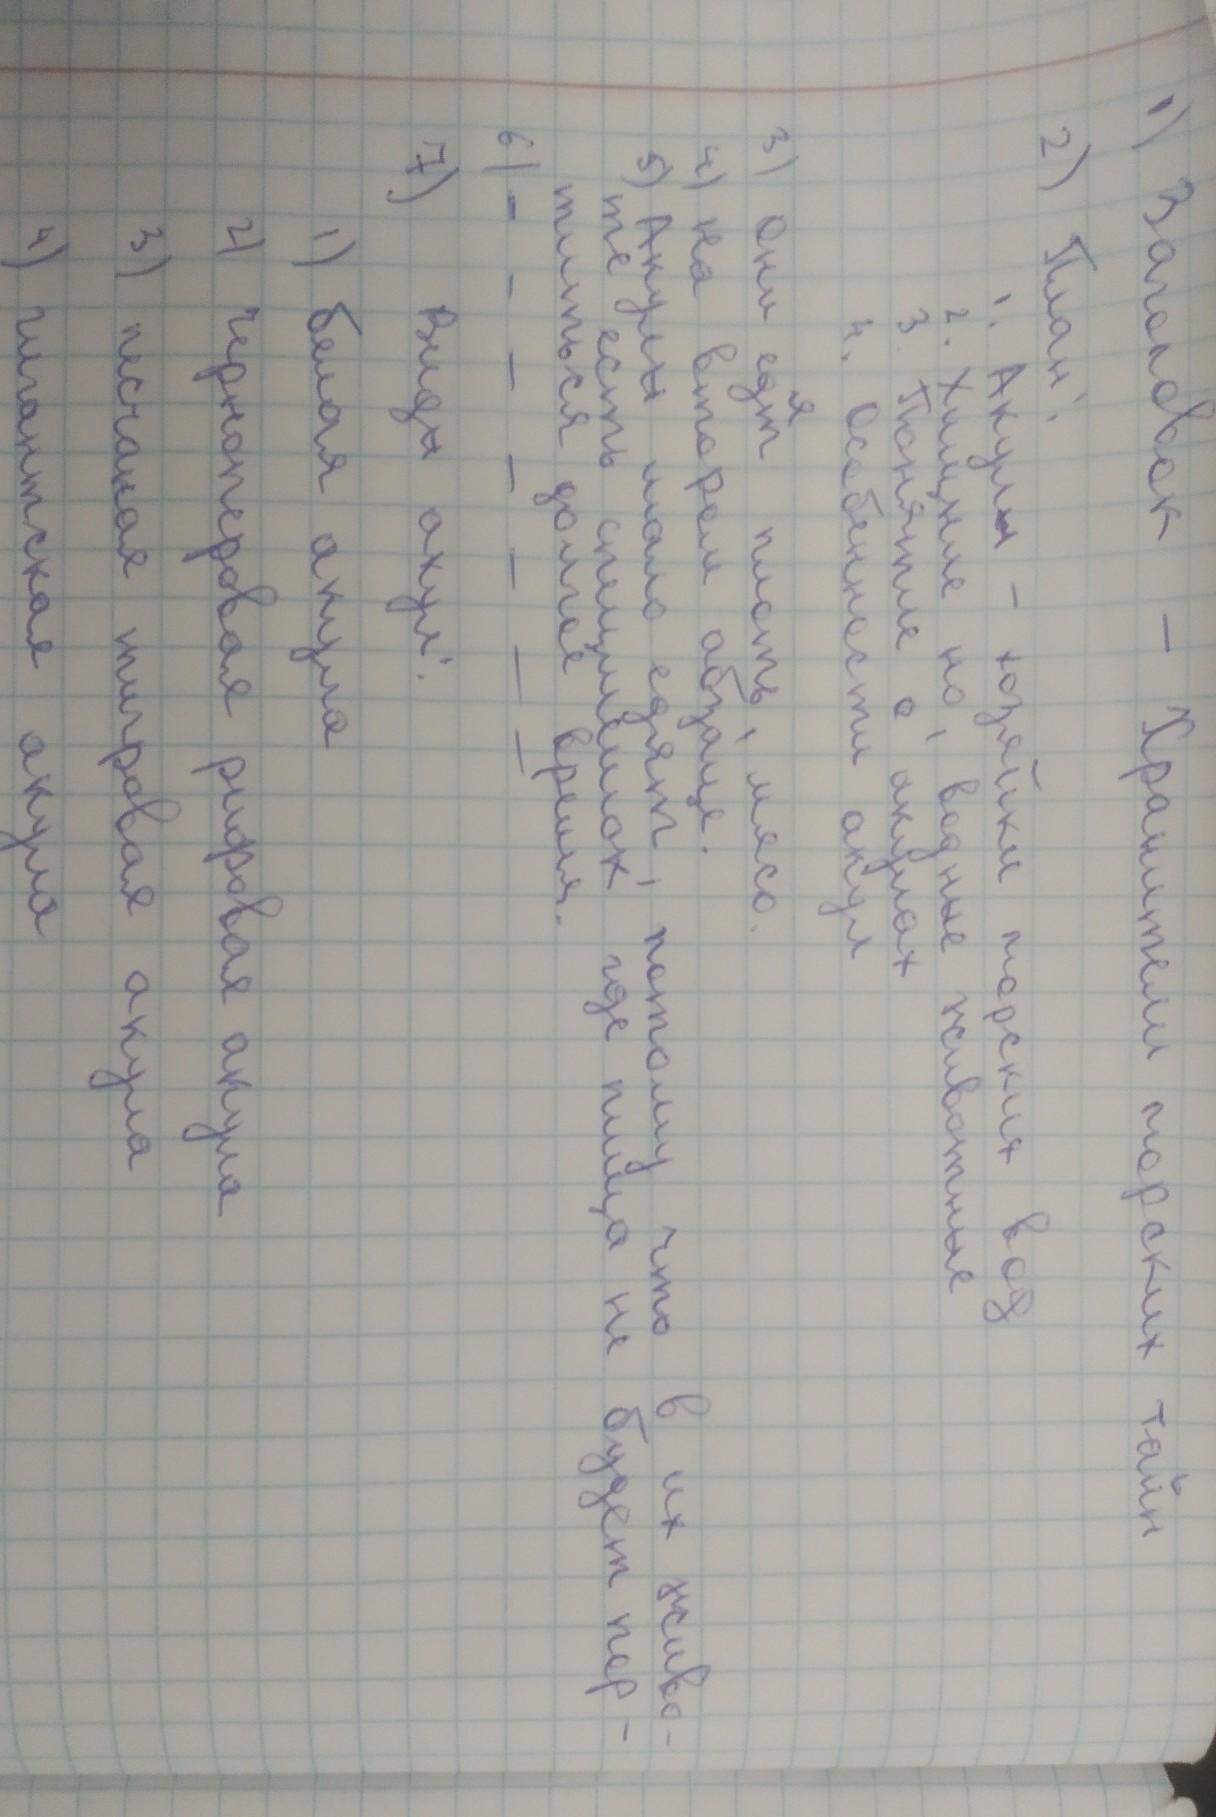 1) Заголовок - Хранители морских тайн
2) План:
1. Акулы - хозяйки морских вод
2. Хищные но, водные животные
3. Понятие о акулах
4. Особенности акул
3) Они едят плоть, мясо.
4) На втором абзаце.
5) Акулы мало едят, потому что в их живо-
те есть спецмешок где пища не будет пор-
титься долгое время.
6) - - - - - - -
7) Виды акул:
1) белая акула
2) чернопёровая рифовая акула
3) песчаная тигровая акула
4) гигантская акула